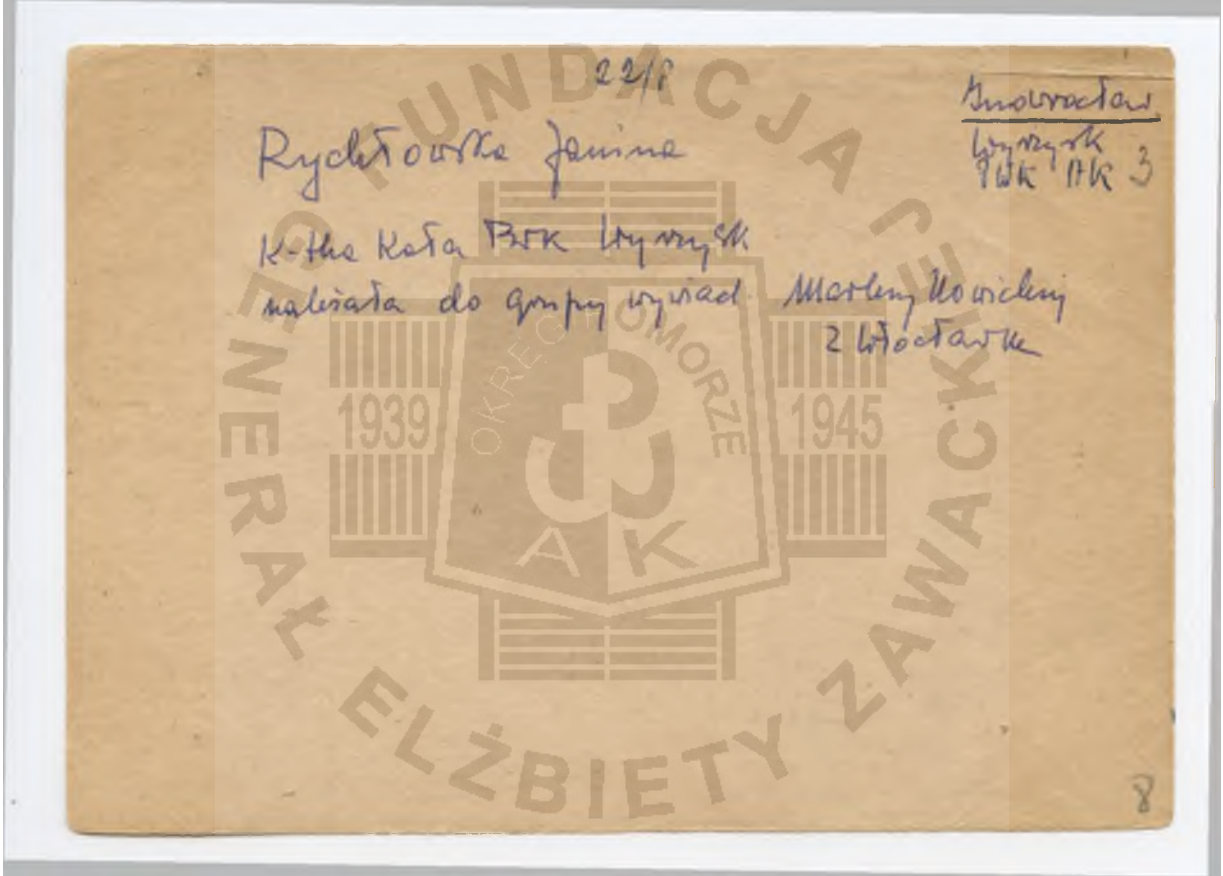 22/8
Inowrocław
Wyrzysk
PWK AK 3
Rychłowska Janina
K-tka Koła PWK Wyrzysk
należała do grupy wywiad. Marleny Nowickiej
z Włocławka
FUNDACJA GENERAŁ ELŻBIETY ZAWACKIEJ
OKRĘG POMORZE
1939
1945
AK
8